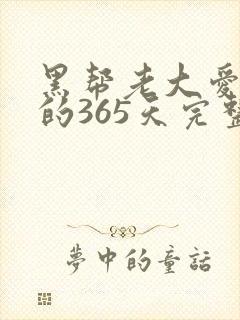 黑帮老大爱
的365天完整
夢中的童話